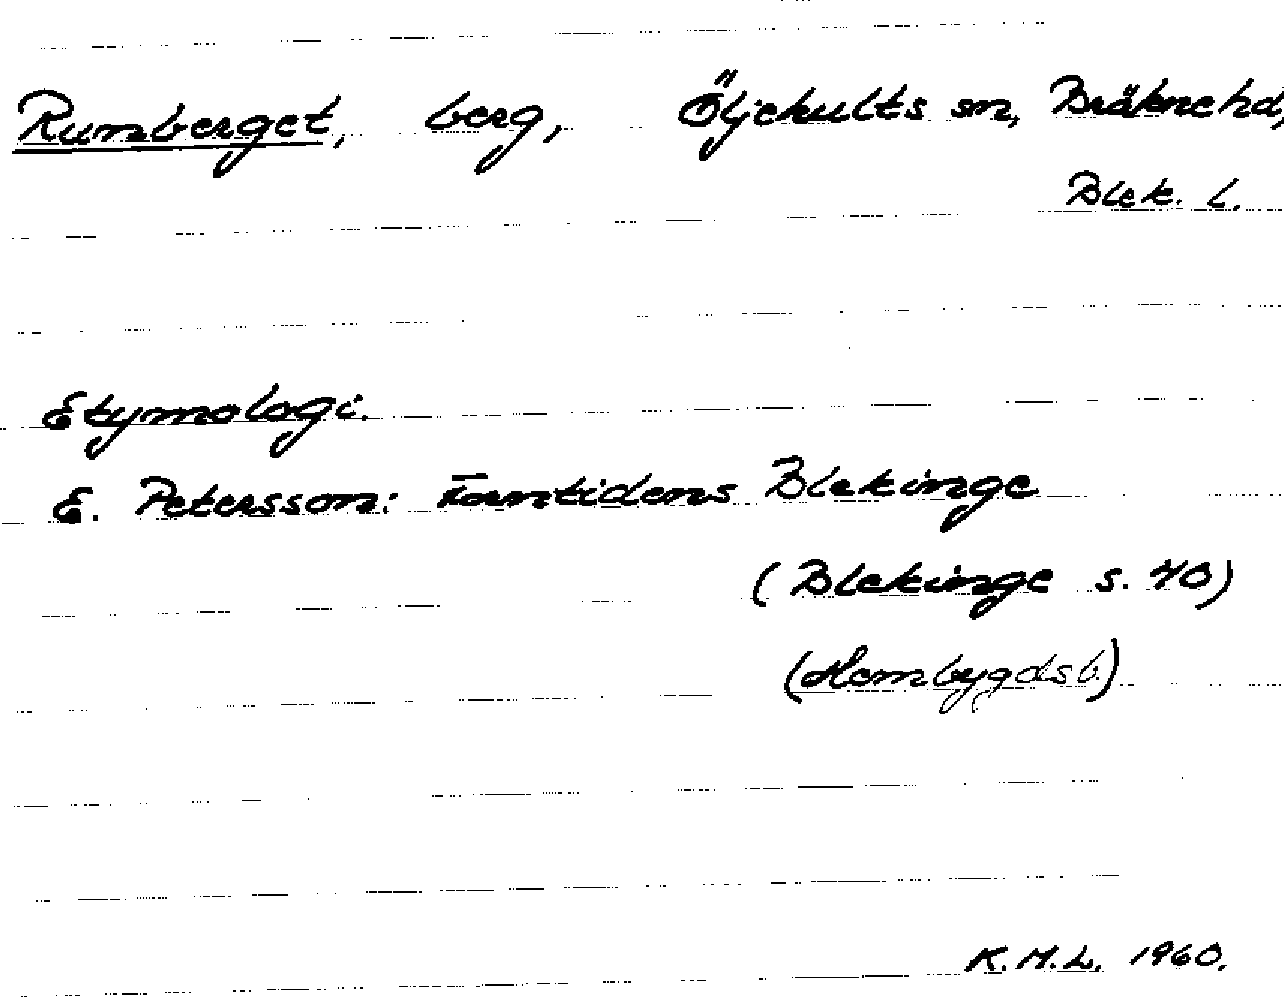 Rumberget, berg, Öljehults sn, Bräknehd,
Blek. l.
Etymologi.
E. Petersson: Forntidens Blekinge
(Blekinge s. 40)
(Hembygdsb.)
K.M.L. 1960.